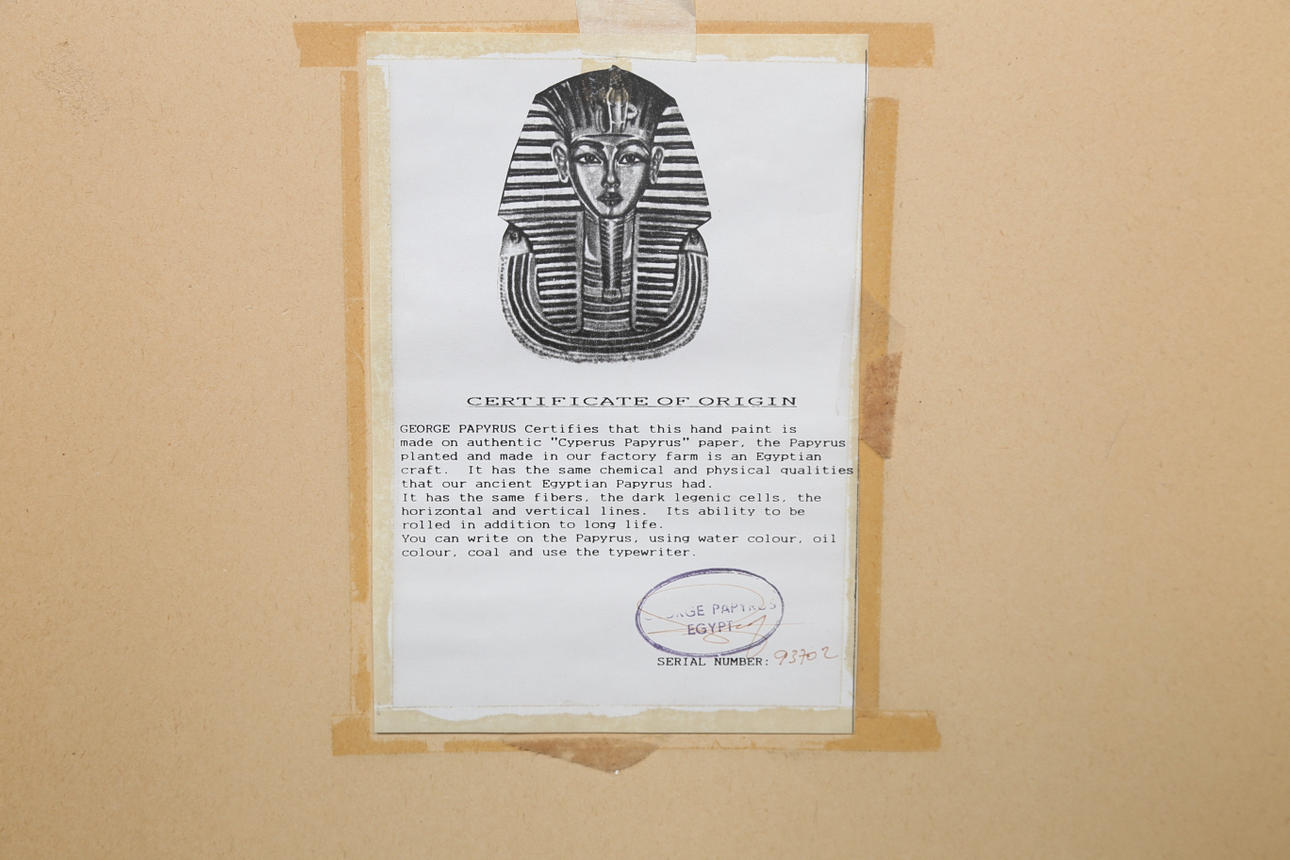 CERTIFICATE OF ORIGIN
GEORGE PAPYRUS Certifies that this hand paint is
made on authentic "Cyperus Papyrus" paper, the Papyrus
planted and made in our factory farm is an Egyptian
craft. It has the same chemical and physical qualities
that our ancient Egyptian Papyrus had.
It has the same fibers, the dark legenic cells, the
horizontal and vertical lines. Its ability to be
rolled in addition to long life.
You can write on the Papyrus, using water colour, oil
colour, coal and use the typewriter.
GEORGE PAPYRUS
EGYPT
SERIAL NUMBER: 93702